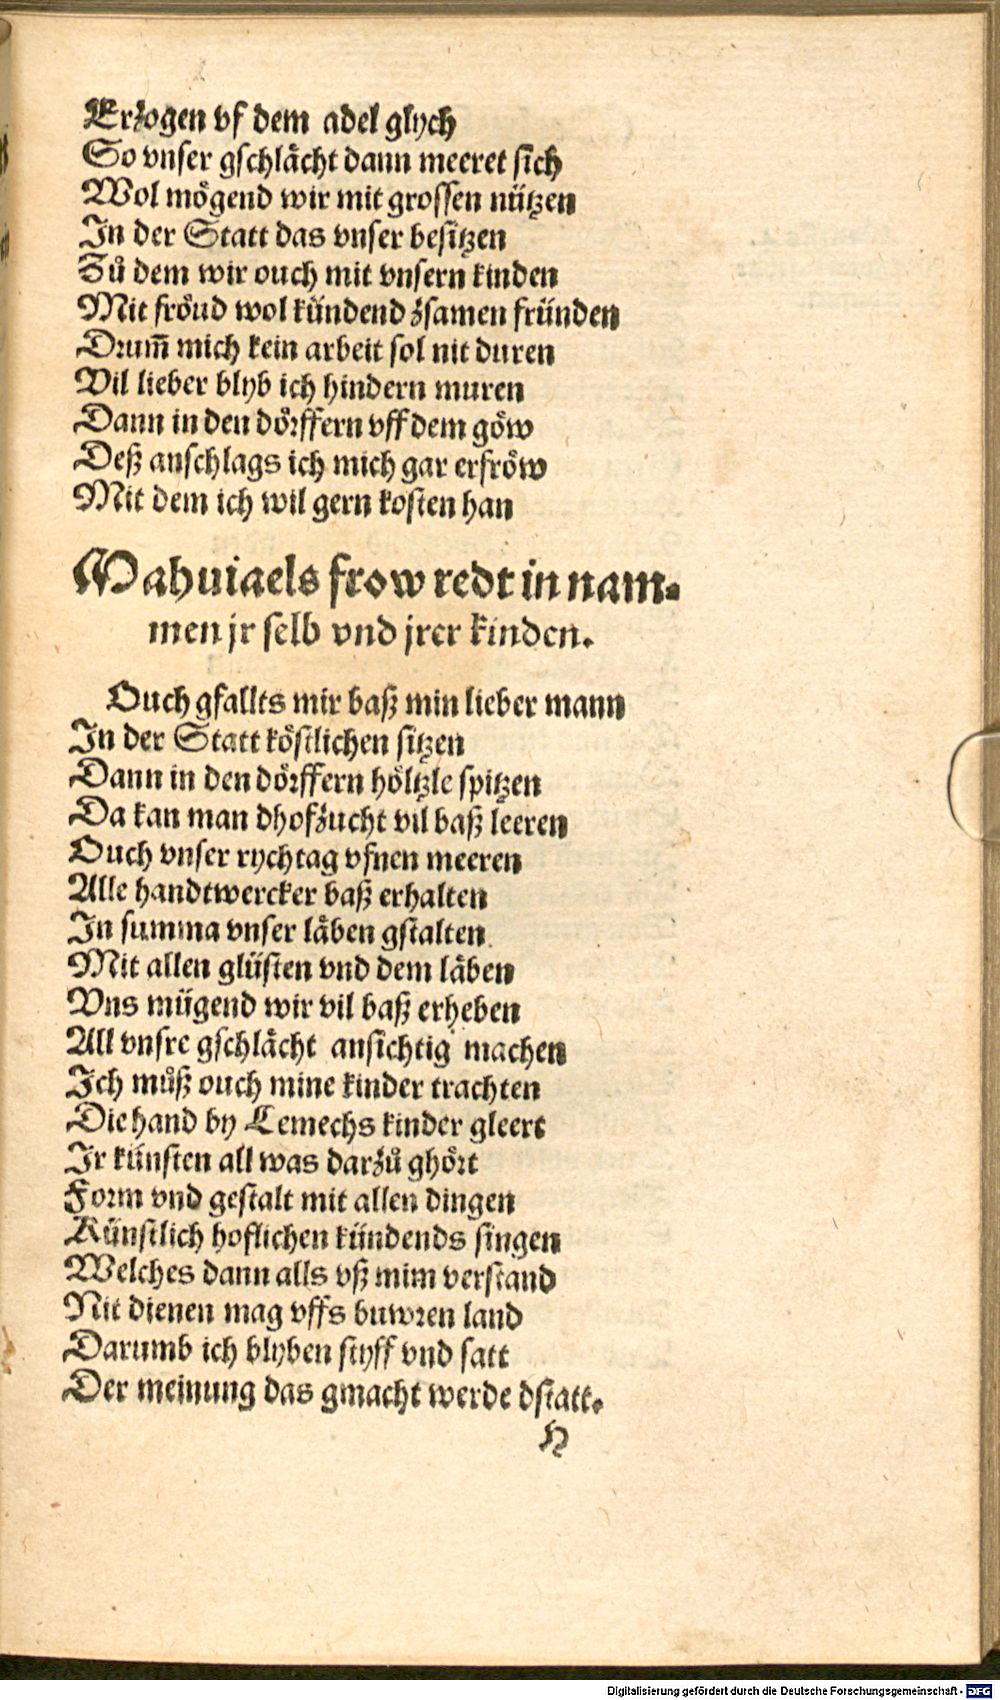 Erzogen vf dem adel glych
So vnser gschlächt dann meeret sich
Wol mögend wir mit grossen nützen
In der Statt das vnser besitzen
Zů dem wir ouch mit vnsern kinden
Mit fröud wol kündend zsamen fründen
Drum̄ mich kein arbeit sol nit duren
Vil lieber blyb ich hindern muren
Dann in den dörffern vff dem göw
Deß anschlags ich mich gar erfröw
Mit dem ich wil gern kosten han
Mahuiaels frow redt in nam⸗
men jr selb vnd jrer kinden.
Ouch gfallts mir baß min lieber mann
In der Statt köstlichen sitzen
Dann in den dörffern höltzle spitzen
Da kan man dhofzucht vil baß leeren
Ouch vnser rychtag vfnen meeren
Alle handtwercker baß erhalten
In summa vnser läben gstalten
Mit allen glüsten vnd dem läben
Vns mügend wir vil baß erheben
All vnsre gschlächt ansichtig machen
Ich můß ouch mine kinder trachten
Die hand by Lemechs kinder gleert
Ir künsten all was darzů ghört
Form vnd gestalt mit allen dingen
Künstlich hoflichen kündends singen
Welches dann alls vß mim verstand
Nit dienen mag vffs buwren land
Darumb ich blyben styff vnd satt
Der meinung das gmacht werde dstatt.
H
Digitalisierung gefördert durch die Deutsche Forschungsgemeinschaft - DFG